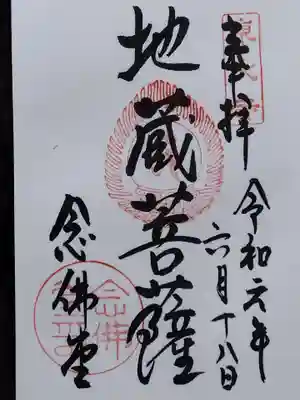 東大寺
奉拝
令和元年
六月十八日
地蔵菩薩
念佛堂